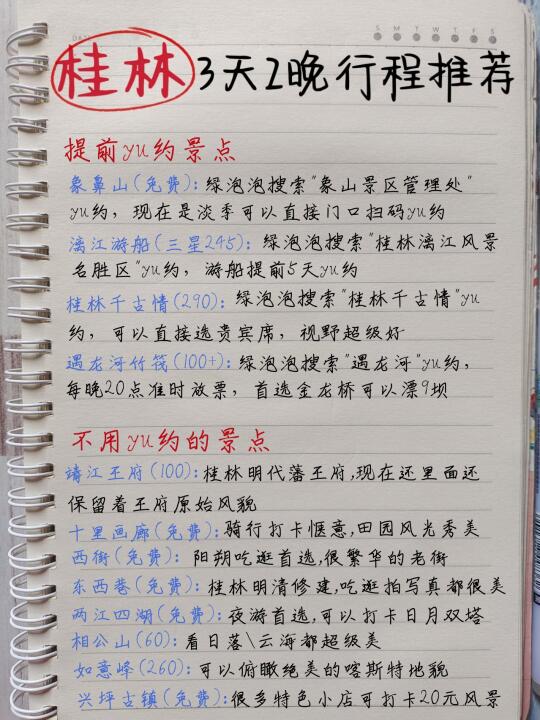 S M T W T F S
桂林3天2晚行程推荐
提前yu约景点
象鼻山(免费):绿泡泡搜索"象山景区管理处"
yu约，现在是淡季可以直接门口扫码yu约
漓江游船(三星245):绿泡泡搜索"桂林漓江风景
名胜区"yu约，游船提前5天yu约
桂林千古情(290):绿泡泡搜索"桂林千古情"yu
约，可以直接选贵宾席，视野超级好
遇龙河竹筏(100+):绿泡泡搜索"遇龙河"yu约，
每晚20点准时放票，首选金龙桥可以漂9坝
不用yu约的景点
靖江王府(100):桂林明代藩王府,现在还里面还
保留着王府原始风貌
十里画廊(免费):骑行打卡惬意,田园风光秀美
西街(免费):阳朔吃逛首选,很繁华的老街
东西巷(免费):桂林明清修建,吃逛拍写真都很美
两江四湖(免费):夜游首选,可以打卡日月双塔
相公山(60):看日落\云海都超级美
如意峰(260):可以俯瞰绝美的喀斯特地貌
兴坪古镇(免费):很多特色小店可打卡20元风景